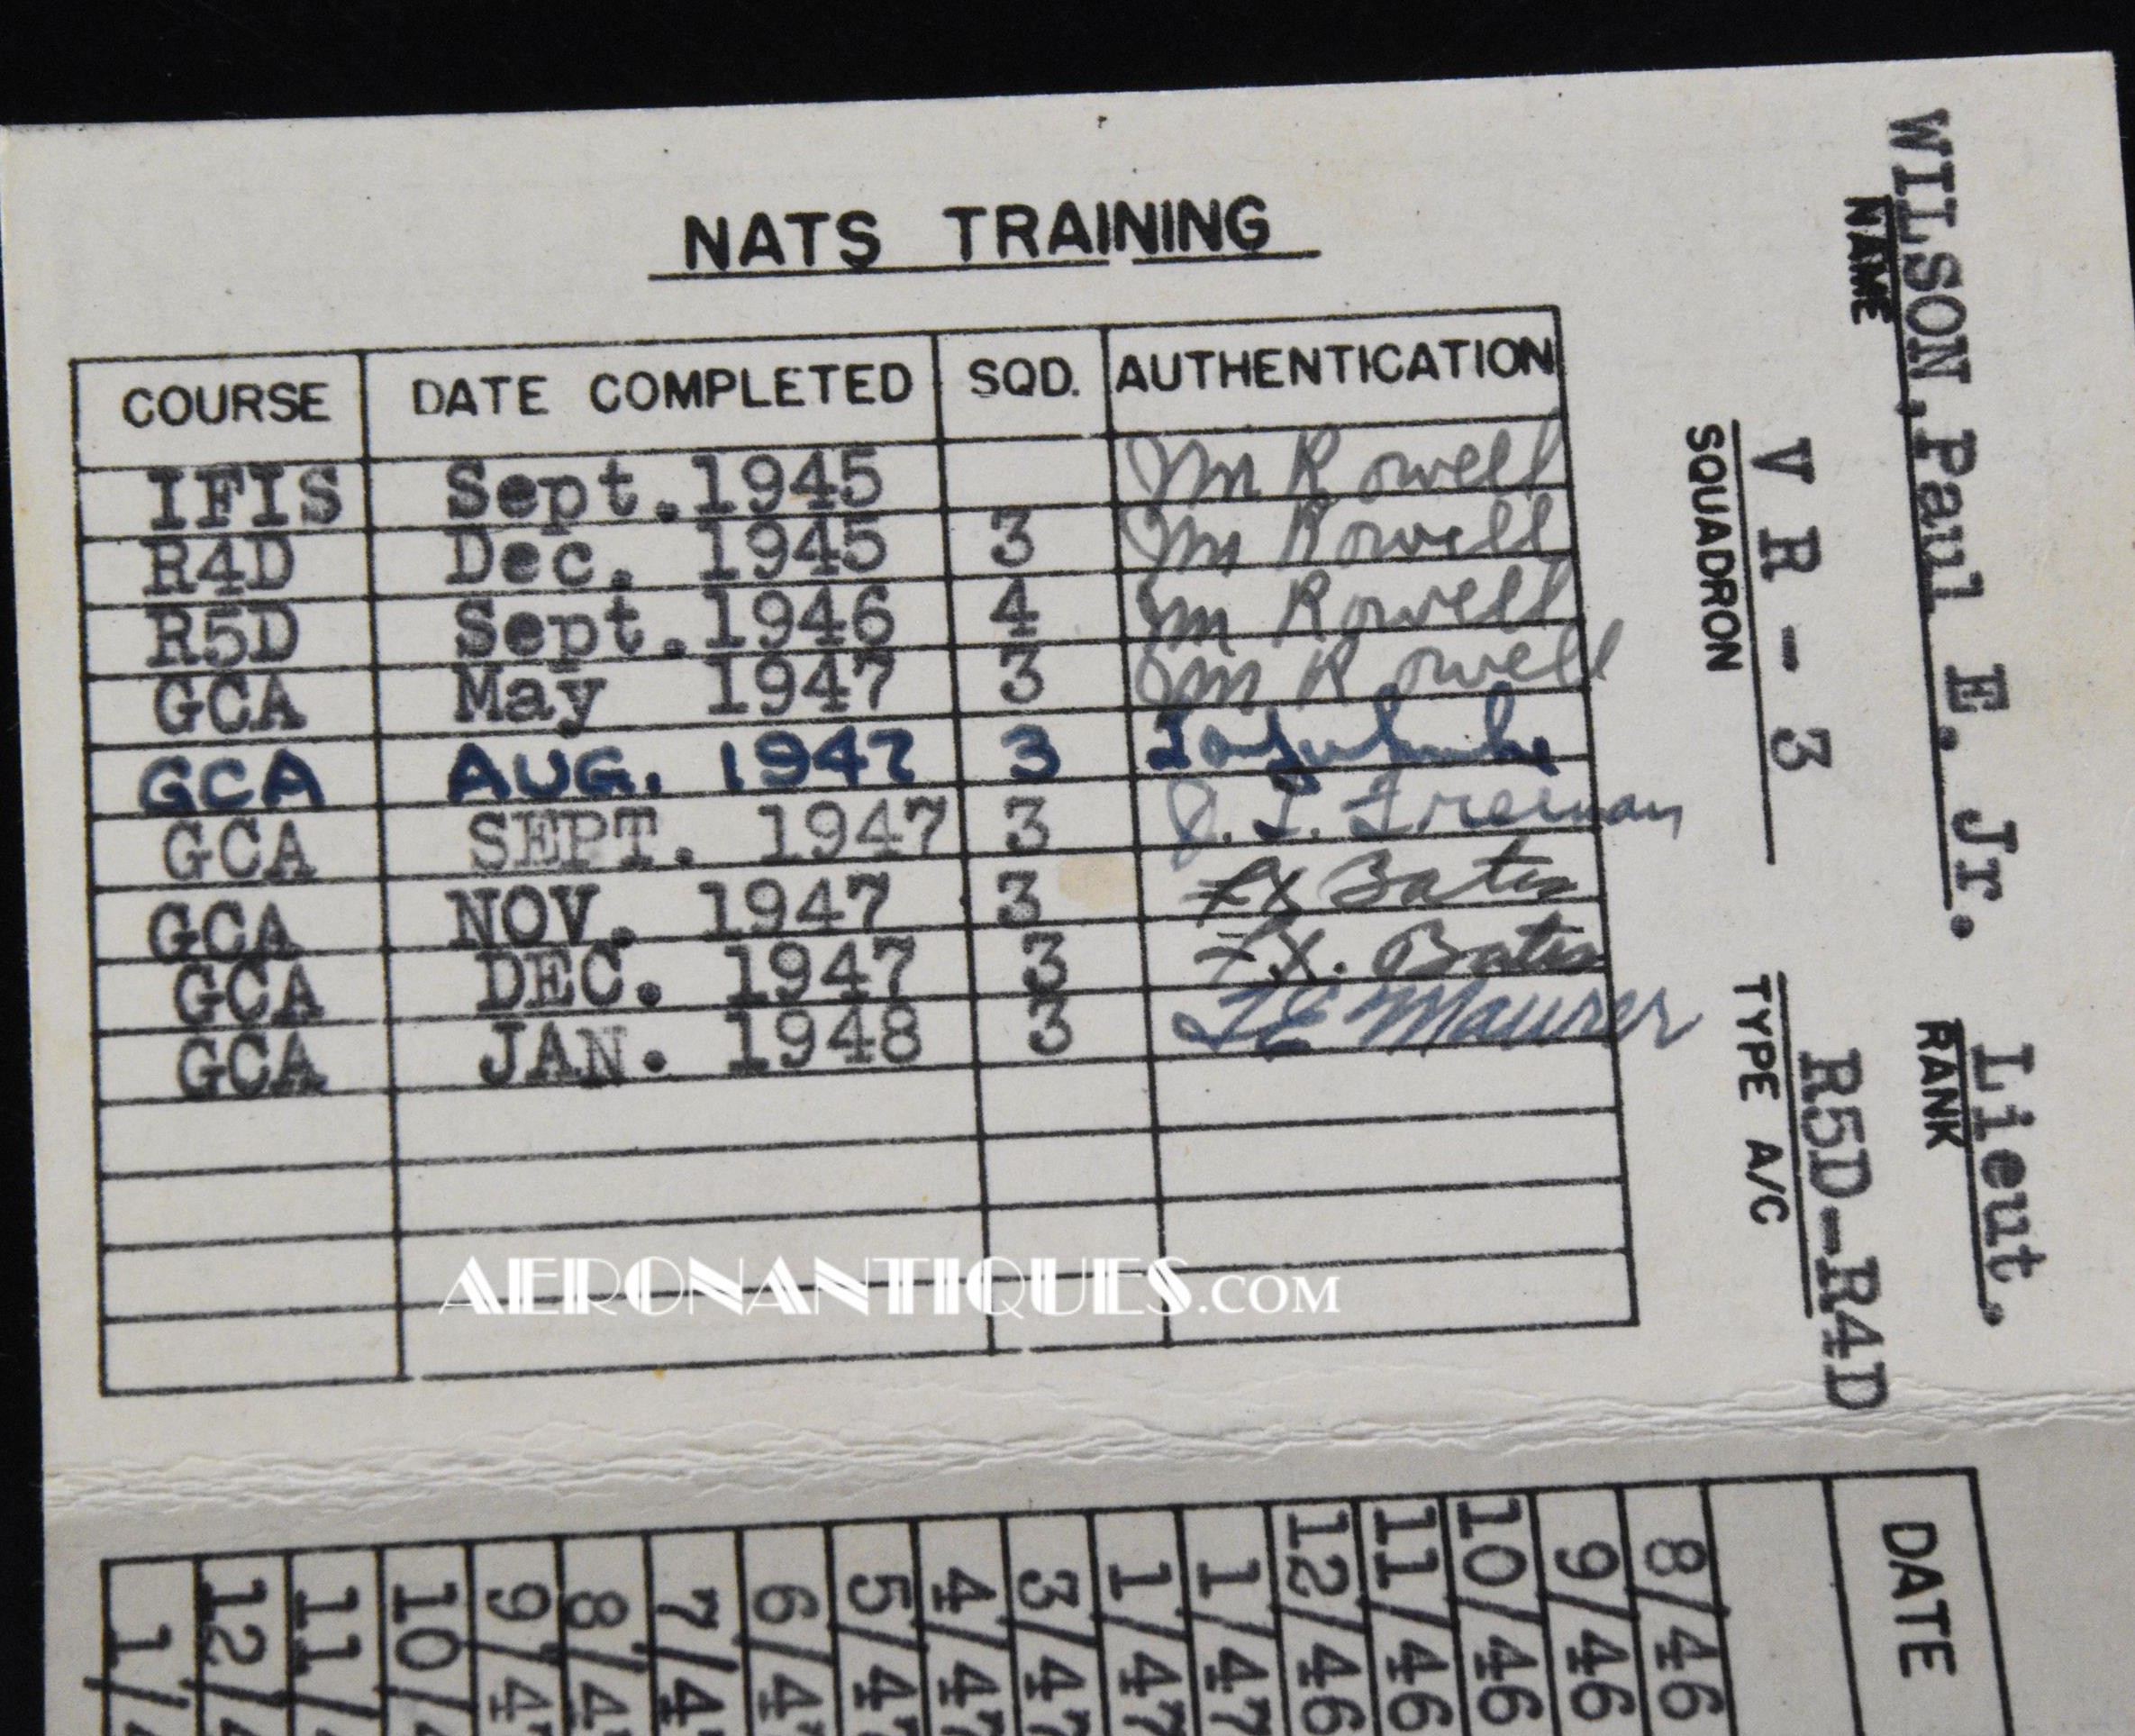 NATS TRAINING
COURSE DATE COMPLETED SQD. AUTHENTICATION
IFIS Sept.1945 M Rowell
R4D Dec. 1945 3 M Rowell
R5D Sept.1946 4 M Rowell
GCA May 1947 3 M Rowell
GCA AUG. 1947 3
GCA SEPT. 1947 3 J. L. Freeman
GCA NOV. 1947 3 FX Bates
GCA DEC. 1947 3 FX. Bates
GCA JAN. 1948 3 Maurer
WILSON, Paul E. Jr. Lieut.
NAME RANK
V R - 3 R5D-R4D
SQUADRON TYPE A/C
AERONANTIQUES.COM
DATE
8/46
9/46
10/46
11/46
12/46
1/47
1/47
3/47
4/47
5/47
6/4
7/4
8/4
9/4
10/
11/
12/
1/